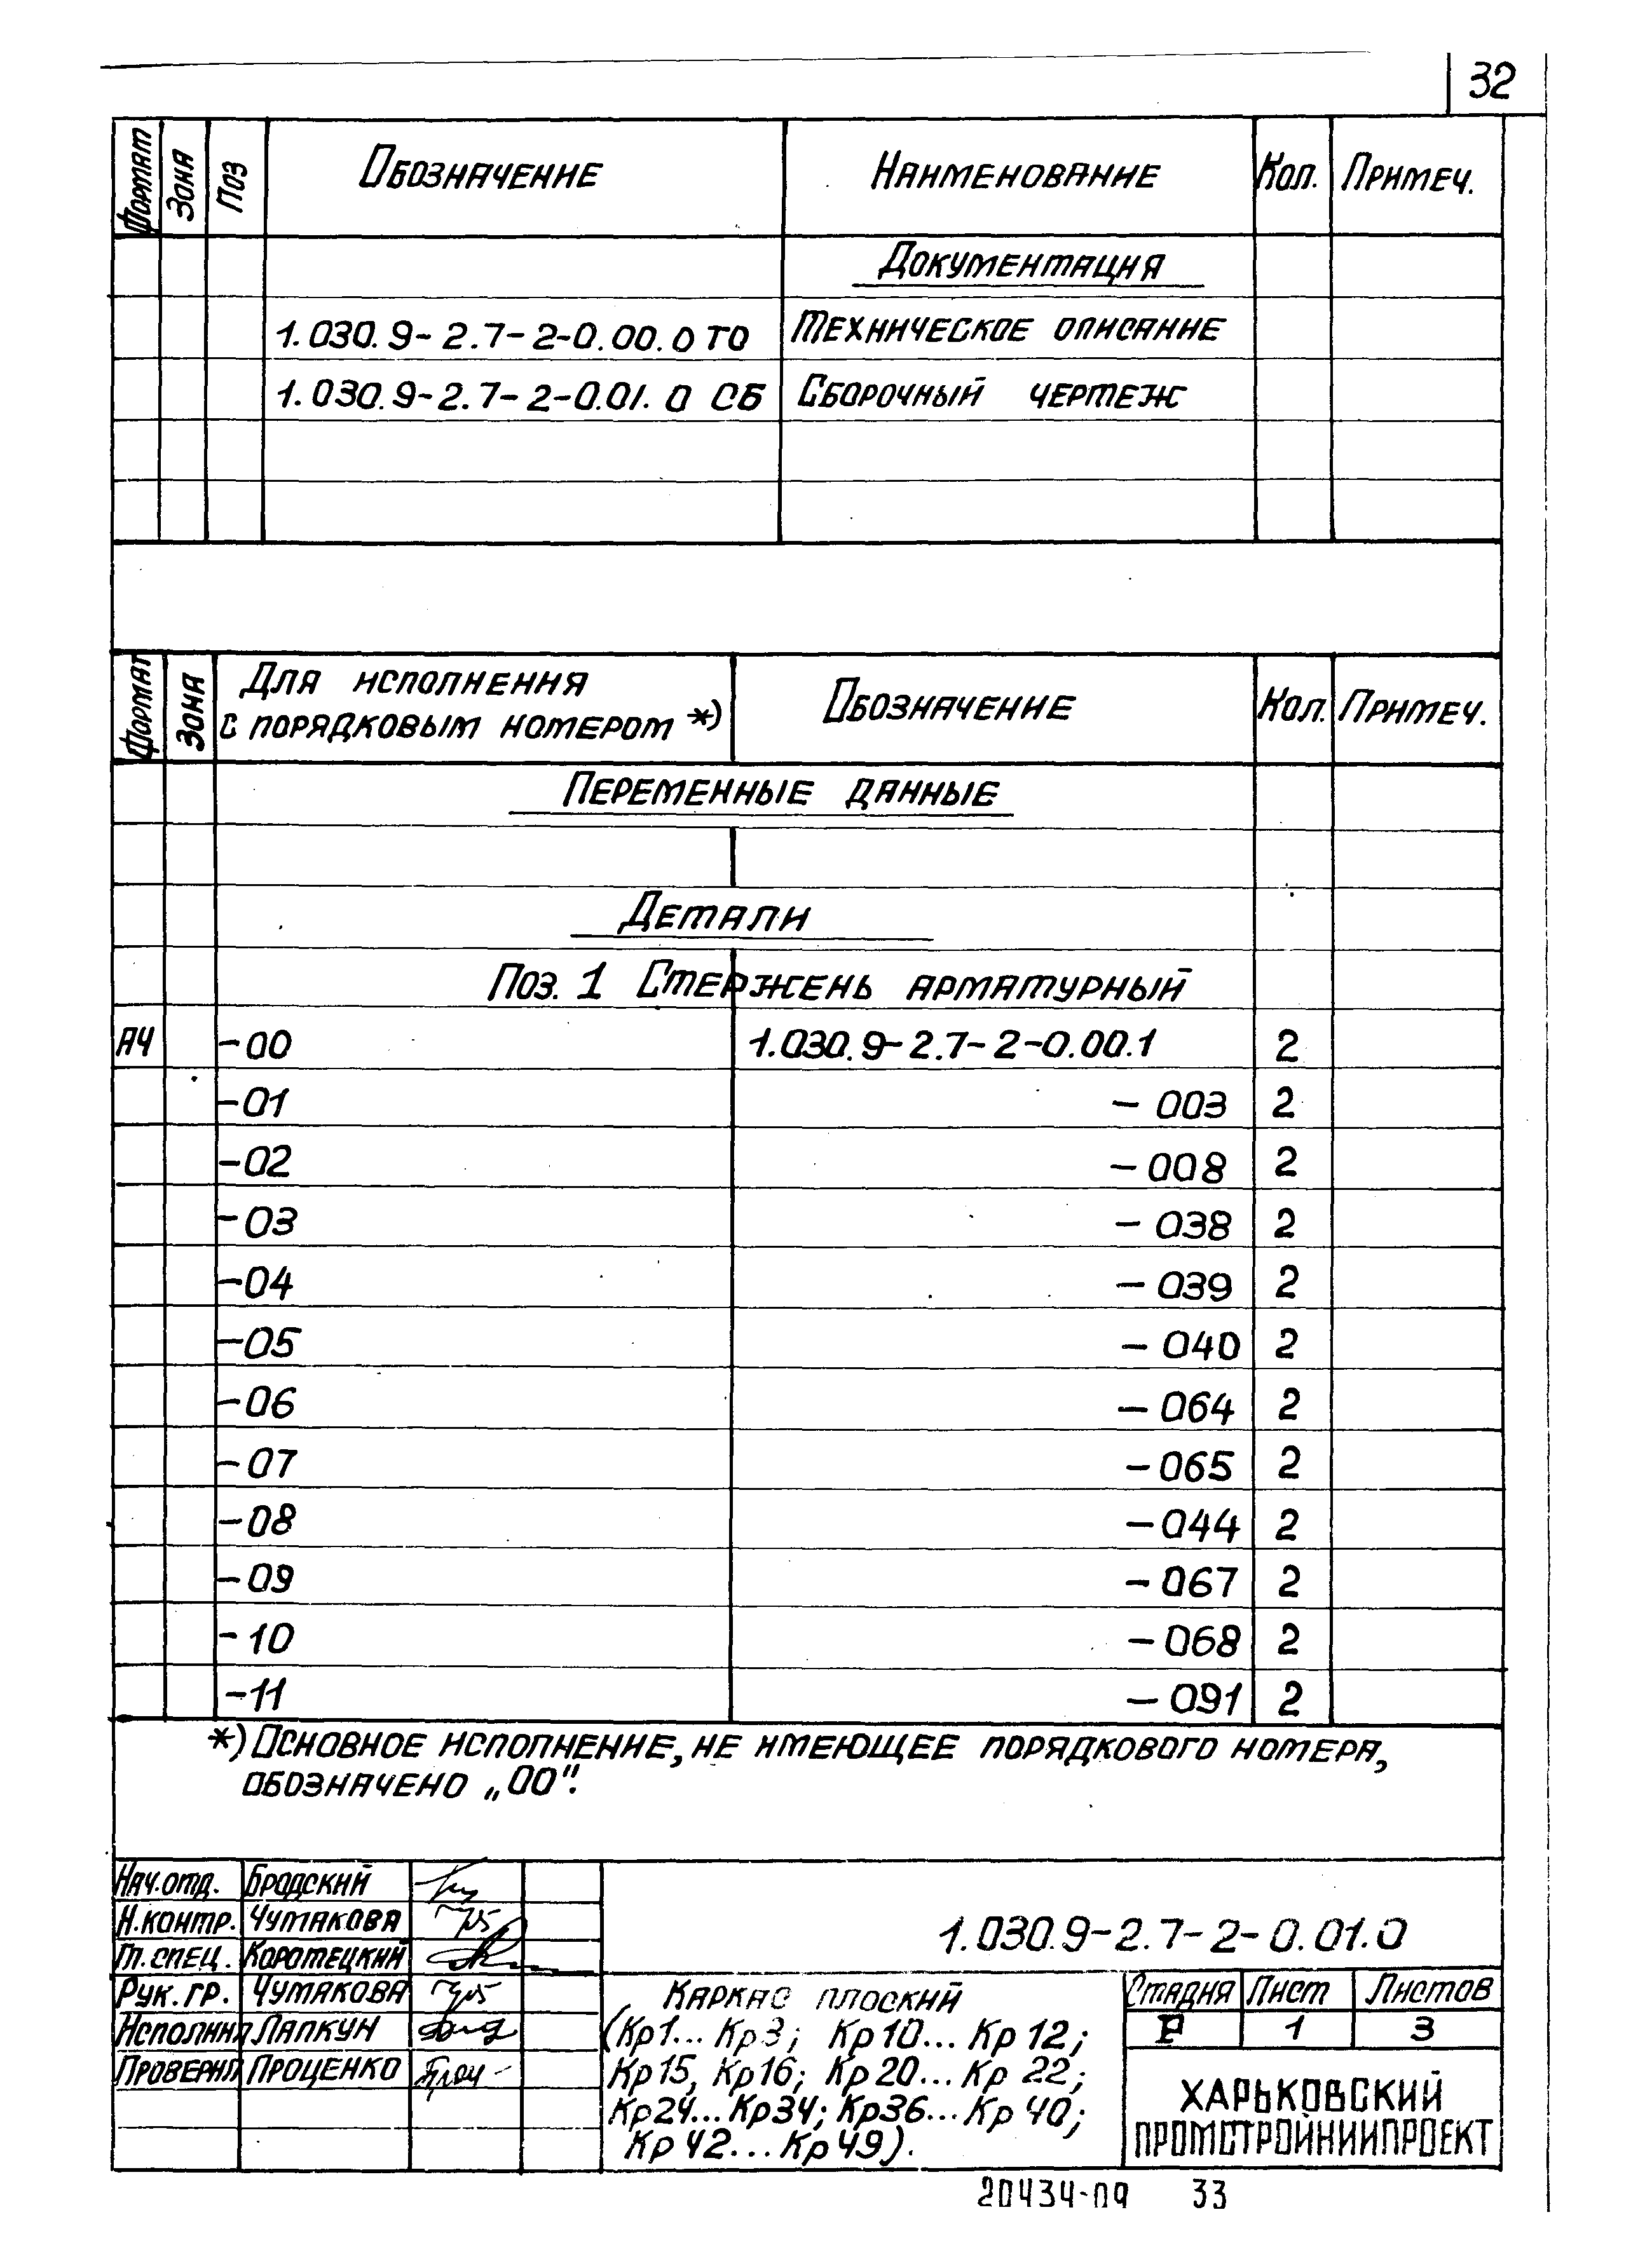 32
Формат Зона Поз Обозначение Наименование Кол. Примеч.
Документация
1.030.9-2.7-2-0.00.0 ТО Техническое описание
1.030.9-2.7-2-0.01.0 СБ Сборочный чертеж
Формат Зона Для исполнения с порядковым номером *) Обозначение Кол. Примеч.
Переменные данные
Детали
Поз. 1 Стержень арматурный
А4 -00 1.030.9-2.7-2-0.00.1 2
-01 -003 2
-02 -008 2
-03 -038 2
-04 -039 2
-05 -040 2
-06 -064 2
-07 -065 2
-08 -044 2
-09 -067 2
-10 -068 2
-11 -091 2
*) Основное исполнение, не имеющее порядкового номера,
обозначено „00".
Нач.отд. Бродский
Н.контр. Чумакова
Гл.спец. Коротецкий
Рук.гр. Чумакова
Исполнил Лапкун
Проверил Проценко
1.030.9-2.7-2-0.01.0
Каркас плоский
(Кр1... Кр3; Кр10... Кр12;
Кр15, Кр16; Кр20... Кр22;
Кр24... Кр34; Кр36... Кр40;
Кр42... Кр49).
Стадия Лист Листов
Р 1 3
ХАРЬКОВСКИЙ
ПРОМСТРОЙНИИПРОЕКТ
20434-09 33